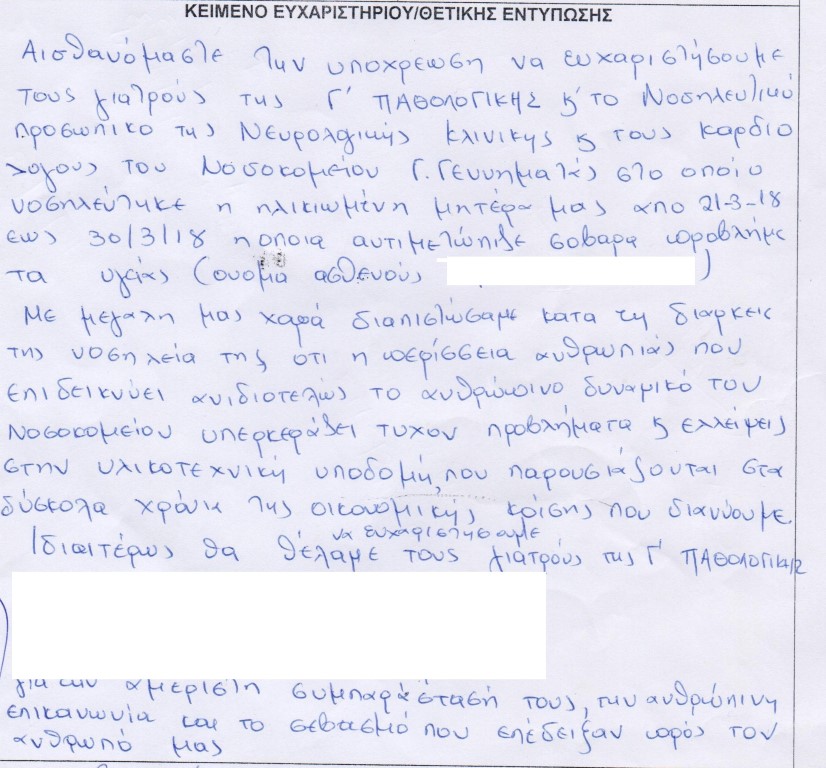 ΚΕΙΜΕΝΟ ΕΥΧΑΡΙΣΤΗΡΙΟΥ/ΘΕΤΙΚΗΣ ΕΝΤΥΠΩΣΗΣ
Αισθανόμαστε την υποχρεωση να ευχαριστήσουμε
τους γιατρούς της Γ' ΠΑΘΟΛΟΓΙΚΗΣ ϗ το Νοσηλευτικό
προσωπικο της Νευρολογικής κλινικης ϗ τους καρδιο
λογους του Νοσοκομείου Γ. Γεννηματάς στο οποίο
νοσηλεύτηκε η ηλικιωμένη μητέρα μας απο 21-3-18
εως 30/3/18 η οποια αντιμετώπιζε σοβαρα προβλήμα
τα υγείας (ονομα ασθενούς )
Με μεγαλη μας χαρά διαπιστώσαμε κατα τη διαρκεια
της νοσηλεία της οτι η περίσσεια ανθρωπιάς που
επιδεικνύει ανιδιοτελώς το ανθρώπινο δυναμικό του
Νοσοκομείου υπερκεράζει τυχον προβλήματα ϗ ελλείψεις
στην υλικοτεχνική υποδομή, που παρουσιάζονται στα
δύσκολα χρόνια της οικονομικής κρίσης που διανύουμε.
Ιδιαιτέρως θα θέλαμε να ευχαριστήσουμε τους γιατρούς της Γ' ΠΑΘΟΛΟΓΙΚΗΣ
για την αμέριστη συμπαράστασή τους, την ανθρώπινη
επικοινωνία και το σεβασμό που επέδειξαν πρός τον
ανθρωπό μας